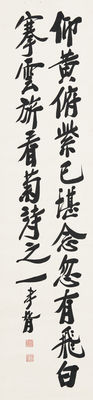 仰黃俯紫已堪念忽有飛白
搴雲旂看菊詩之一孝胥